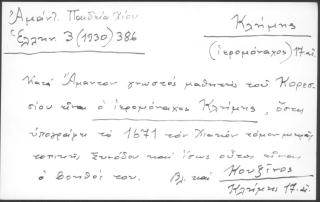 Ἀμάντ. Παιδεία Χίου
Ἑλλην 3 (1930) 386
Κλήμης
(ἱερομόναχος) 17 αἰ.
Κατά Ἄμαντον γνωστός μαθητής τοῦ Κορεσ-
σίου εἶναι ὁ ἱερομόναχος Κλήμης, ὅστις
ὑπογράφει τό 1671 τόν Χιακόν τόμον
τοπικῆς Συνόδου καί ἴσως οὗτος εἶναι
ὁ βοηθός του. Βλ. καί Κουξῖνος
Κλήμης 17 αἰ.